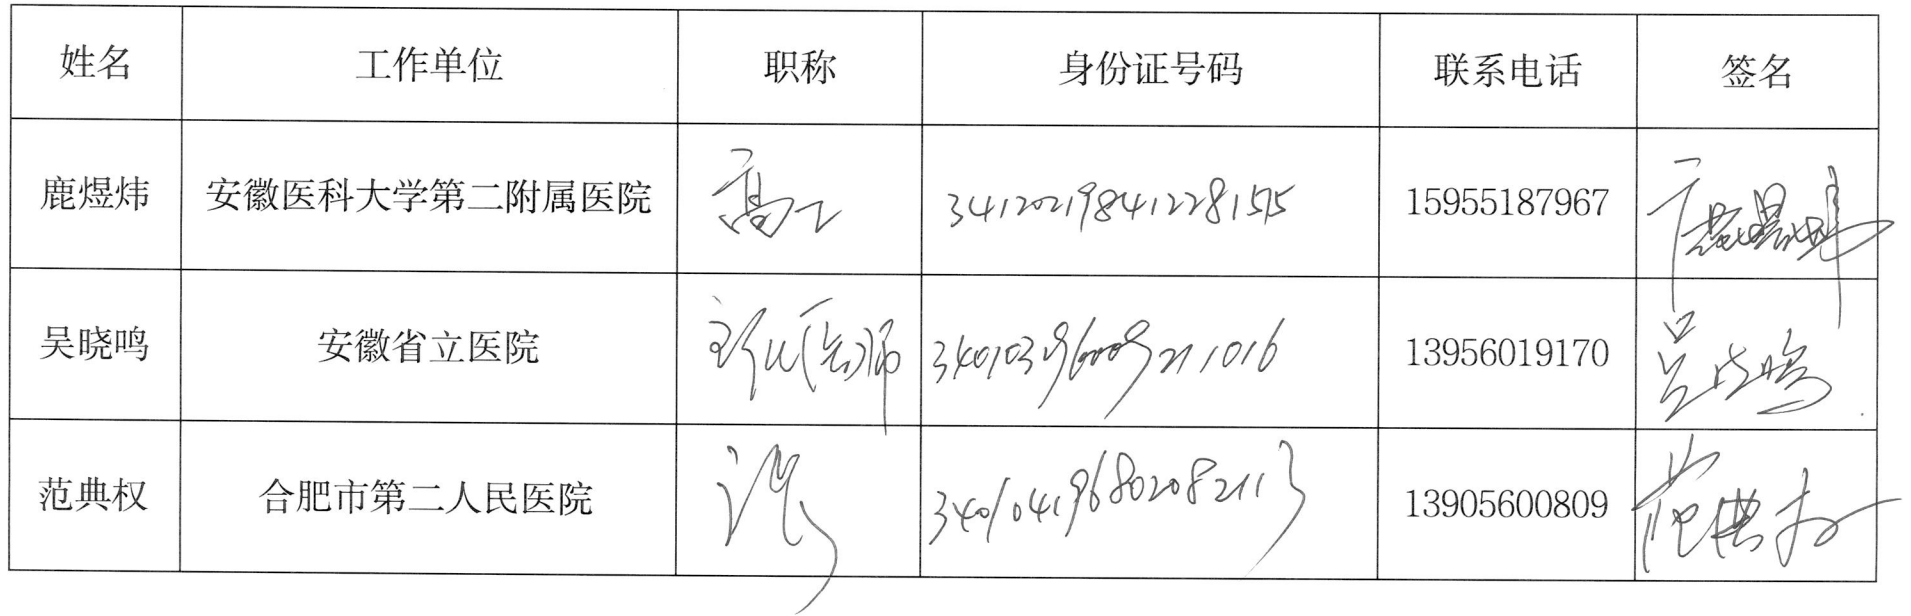 姓名 工作单位 职称 身份证号码 联系电话 签名
鹿煜炜 安徽医科大学第二附属医院 高工 341202198412281515 15955187967 鹿煜炜
吴晓鸣 安徽省立医院 340103196009211016 13956019170 吴晓鸣
范典权 合肥市第二人民医院 340104196802082113 13905600809 范典权